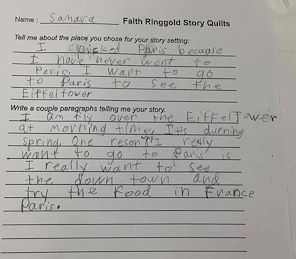 Name: Samara Faith Ringgold Story Quilts
Tell me about the place you chose for your story setting:
I chocked Paris because
I have never went to
Paris. I want to go
to Paris to see the
Eiffeltower
Write a couple paragraphs telling me your story.
I am fly over the EiffelTower
at morning time, Its durning
spring, One reson I realy
want to go to Paris is
I really want to see
the down town and
try the food in France
Paris.